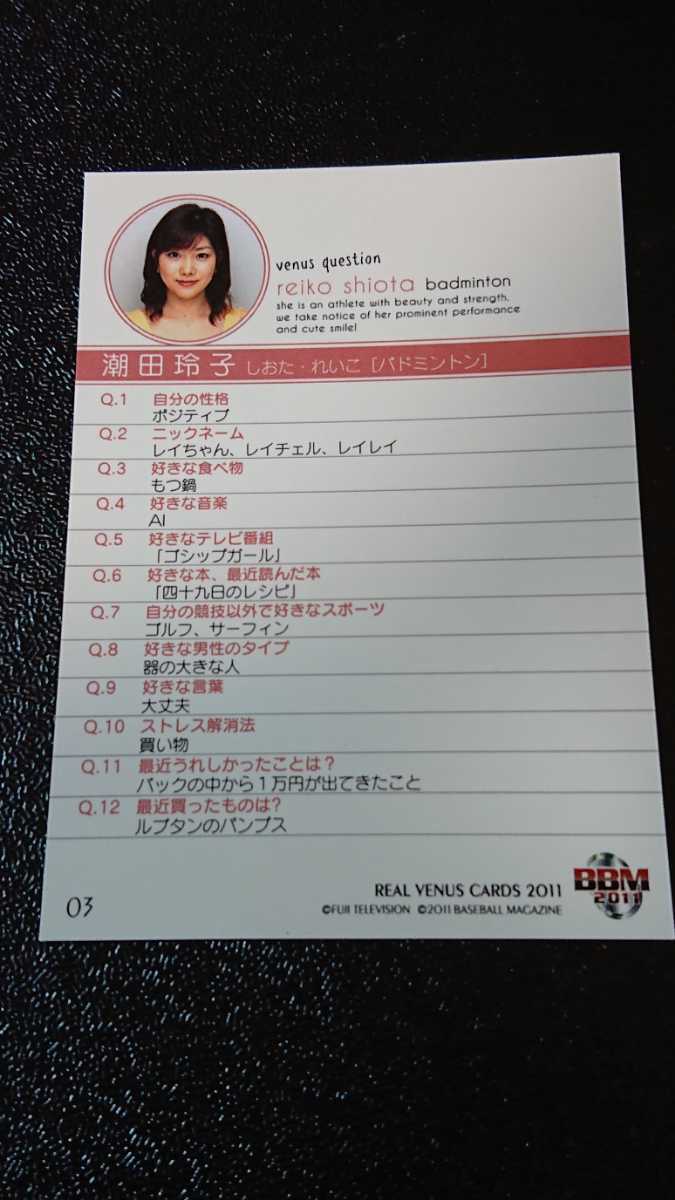 venus question
reiko shiota badminton
she is an athlete with beauty and strength.
we take notice of her prominent performance
and cute smile!
潮田玲子 しおた・れいこ [バドミントン]
Q.1 自分の性格
ポジティブ
Q.2 ニックネーム
レイちゃん、レイチェル、レイレイ
Q.3 好きな食べ物
もつ鍋
Q.4 好きな音楽
AI
Q.5 好きなテレビ番組
「ゴシップガール」
Q.6 好きな本、最近読んだ本
「四十九日のレシピ」
Q.7 自分の競技以外で好きなスポーツ
ゴルフ、サーフィン
Q.8 好きな男性のタイプ
器の大きな人
Q.9 好きな言葉
大丈夫
Q.10 ストレス解消法
買い物
Q.11 最近うれしかったことは?
バックの中から1万円が出てきたこと
Q.12 最近買ったものは?
ルブタンのパンプス
03
REAL VENUS CARDS 2011
©FUJI TELEVISION ©2011 BASEBALL MAGAZINE
BBM
2011